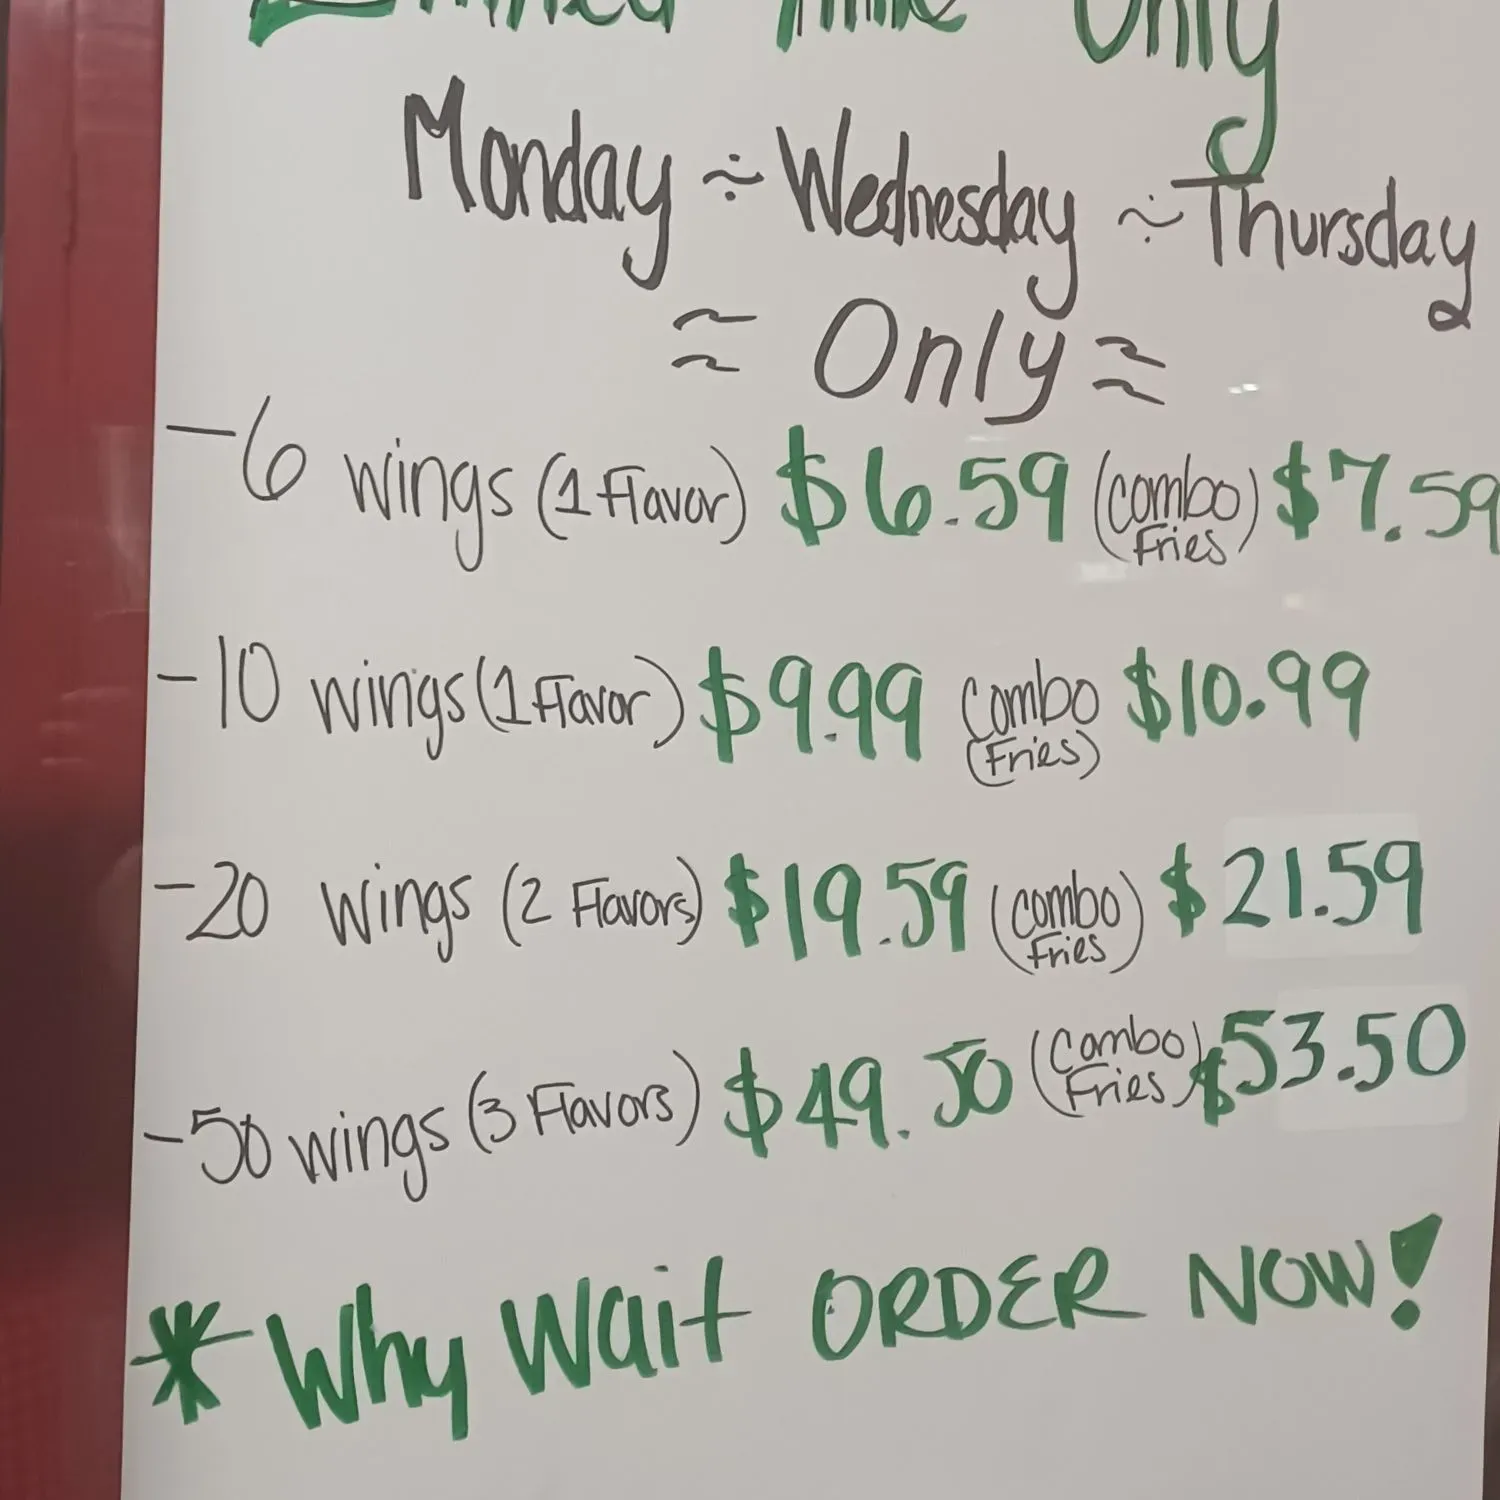 Limited Time Only
Monday ÷ Wednesday ÷ Thursday
≈ Only ≈
-6 wings (1 Flavor) $6.59 (Combo Fries) $7.59
-10 wings (1 Flavor) $9.99 Combo (Fries) $10.99
-20 wings (2 Flavors) $19.59 (Combo Fries) $21.59
-50 wings (3 Flavors) $49.50 (Combo Fries) $53.50
* Why Wait ORDER NOW!